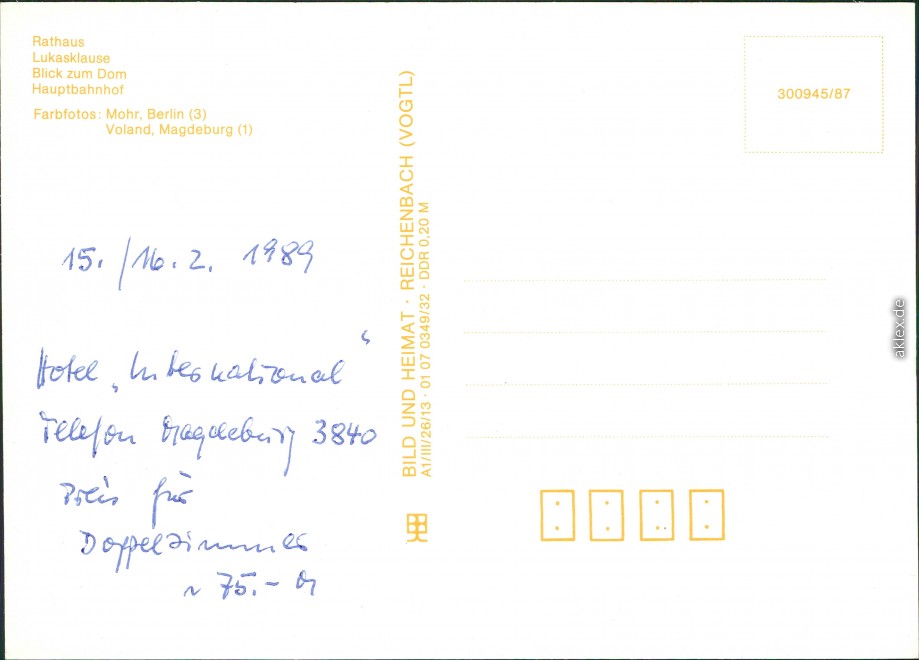 Rathaus
Lukasklause
Blick zum Dom
Hauptbahnhof
Farbfotos: Mohr, Berlin (3)
Voland, Magdeburg (1)
300945/87
15./16. 2. 1989
Hotel „International“
Telefon Magdeburg 3840
Preis für
Doppelzimmer
~ 75.- M
BILD UND HEIMAT · REICHENBACH (VOGTL)
A1/III/26/13 · 01 07 0349/32 · DDR 0,20 M
aklex.de